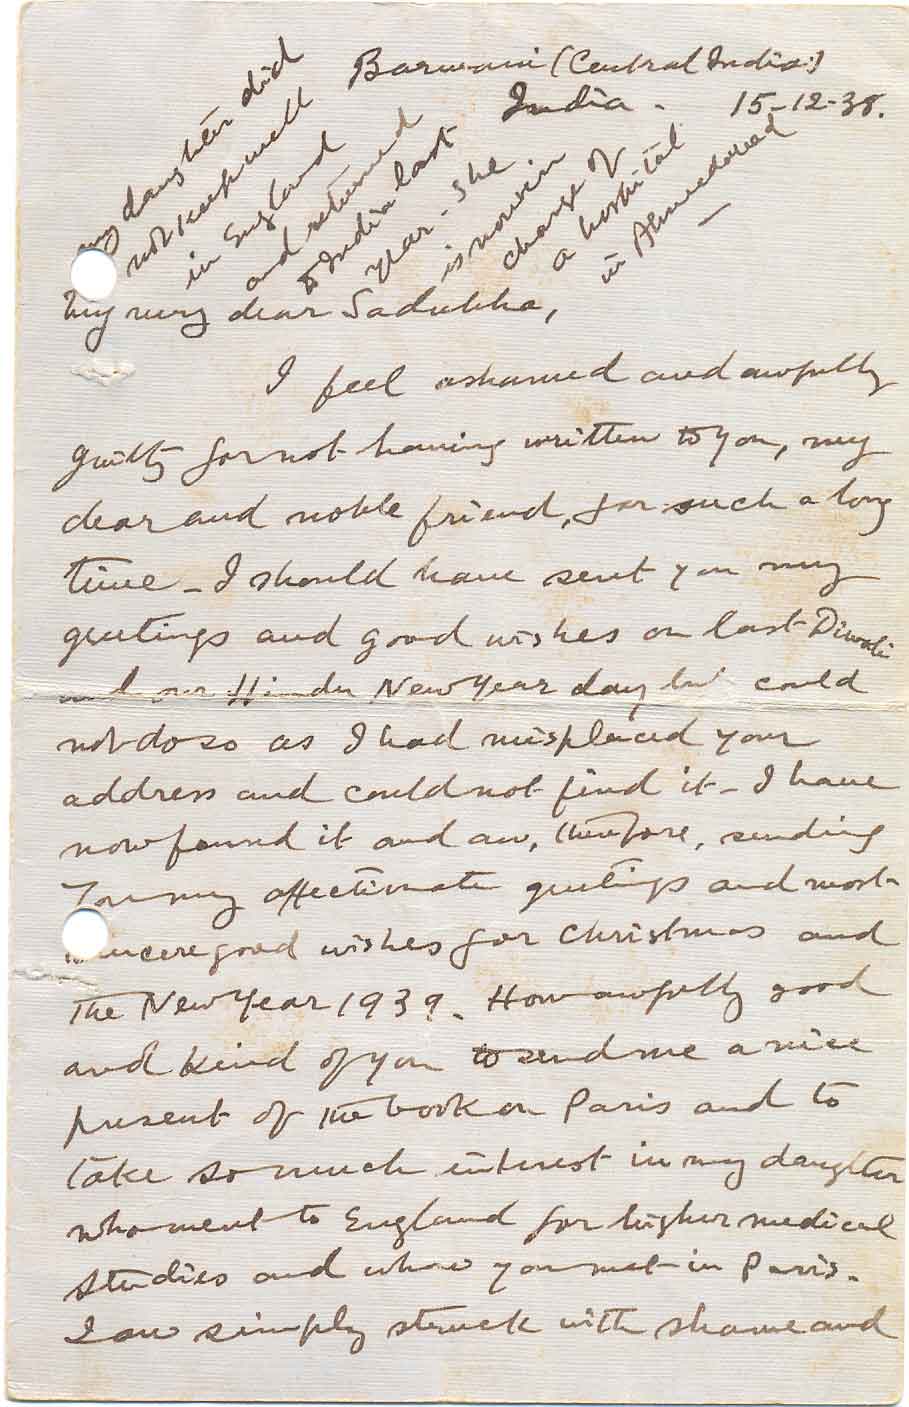 Barwani (Central India)
India. 15-12-38.
my daughter did
not keep well
in England
and returned
to India last
year. She
is now in
charge of
a hospital
in Ahmedabad
My very dear Sadubha,
I feel ashamed and awfully
guilty for not having written to you, my
dear and noble friend, for such a long
time - I should have sent you my
greetings and good wishes on last Diwali
and our Hindu New Year day but could
not do so as I had misplaced your
address and could not find it - I have
now found it and am, therefore, sending
you my affectionate greetings and most
sincere good wishes for Christmas and
the New Year 1939. How awfully good
and kind of you to send me a nice
present of the book on Paris and to
take so much interest in my daughter
who went to England for higher medical
studies and whom you met in Paris.
I am simply struck with shame and